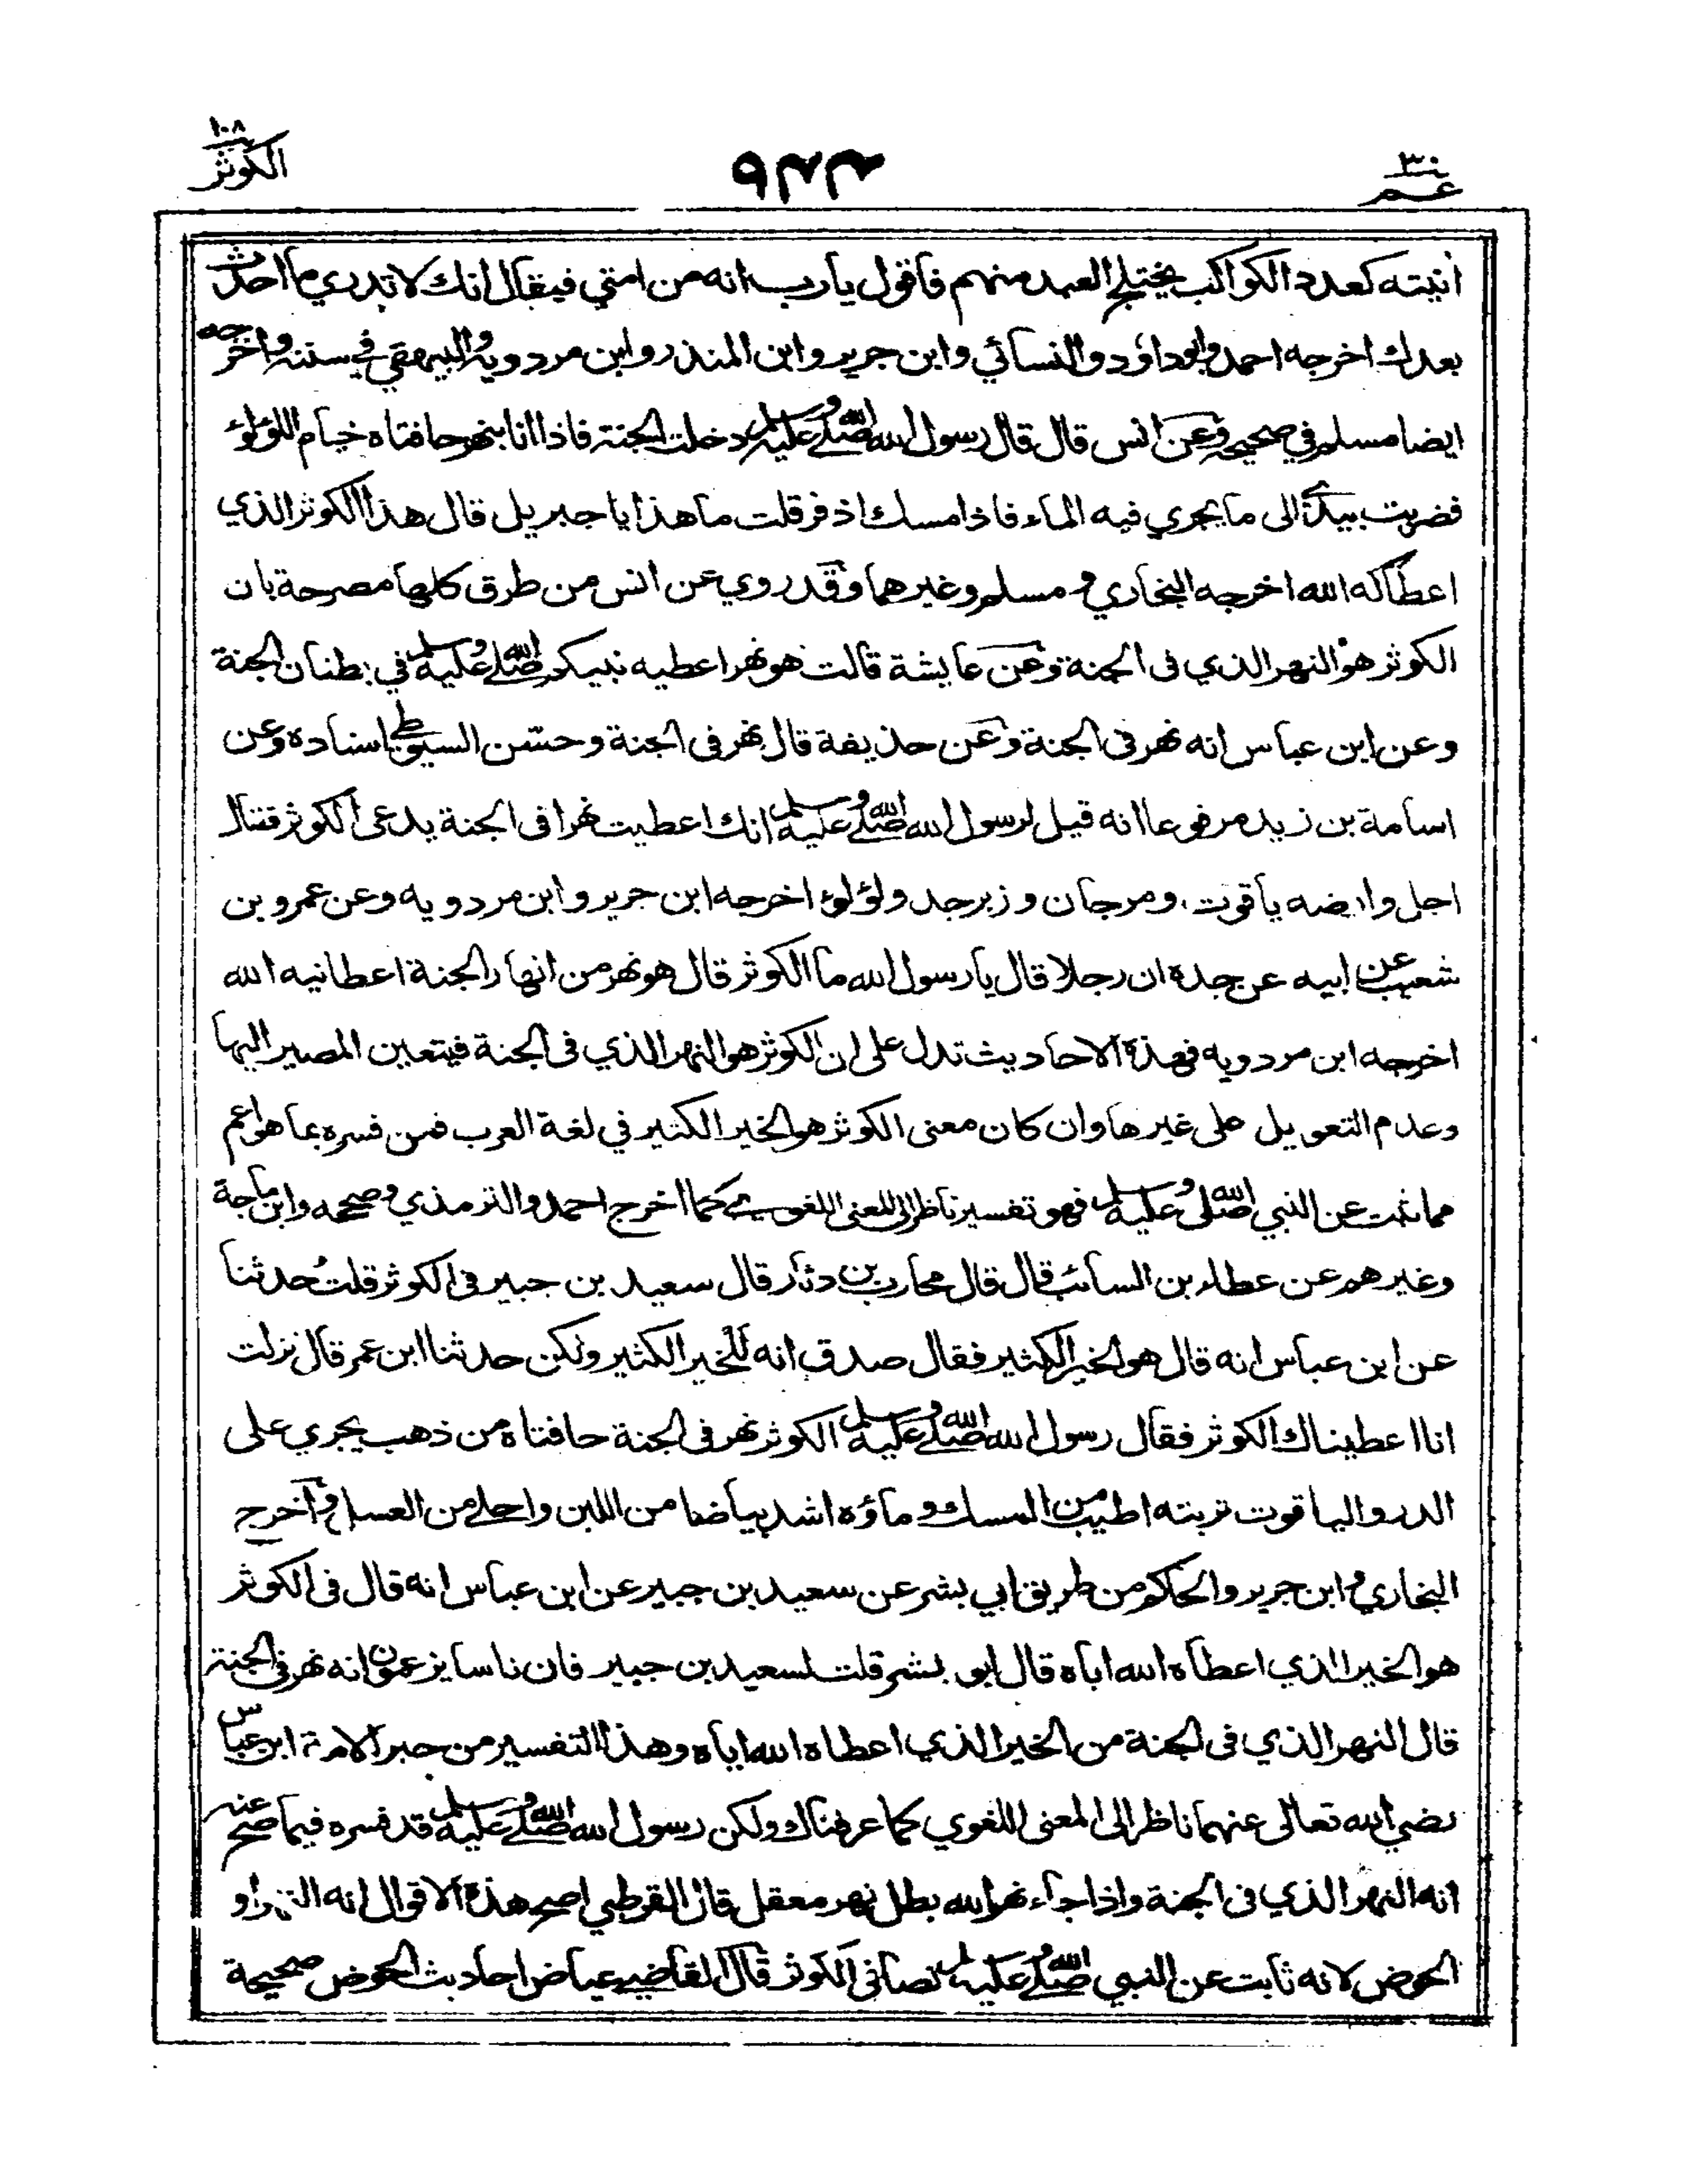 عم ٣٠
الكوثر ١٠٨
أنيته كعدد الكواكب يختلج العبد منهم فاقول يارب انه من امتي فيقال انك لا تدري ما احدث
بعدك اخرجه احمد وابو داؤد والنسائي وابن جرير وابن المنذر وابن مردويه والبيهقي في سننه واخرجه
ايضا مسلم في صحيحه وعن انس قال قال رسول الله صلى الله عليه وسلم دخلت الجنة فاذا انا بنهر حافتاه خيام اللؤلؤ
فضربت بيدي الى ما يجري فيه الماء فاذا مسك اذفر قلت ما هذا يا جبريل قال هذا الكوثر الذي
اعطاكه الله اخرجه البخاري ومسلم وغيرهما وقد روي عن انس من طرق كلها مصرحة بان
الكوثر هو النهر الذي فى الجنة وعن عايشة قالت هو نهر اعطيه نبيكم صلى الله عليه وسلم في بطنان الجنة
وعن ابن عباس انه نهر فى الجنة وعن حذيفة قال نهر فى الجنة وحسّن السيوطي اسناده وعن
اسامة بن زيد مرفوعا انه قيل لرسول الله صلى الله عليه وسلم انك اعطيت نهرا فى الجنة يدعى الكوثر فقال
اجل وارضه ياقوت ومرجان وزبرجد ولؤلؤ اخرجه ابن جرير وابن مردويه وعن عمرو بن
شعيب عن ابيه عن جده ان رجلا قال يا رسول الله ما الكوثر قال هو نهر من انهار الجنة اعطانيه الله
اخرجه ابن مردويه فهذه الاحاديث تدل على ان الكوثر هو النهر الذي فى الجنة فيتعين المصير اليها
وعدم التعويل على غيرها وان كان معنى الكوثر هو الخير الكثير في لغة العرب فمن فسره بما هو اعم
مما ثبت عن النبي صلى الله عليه وسلم فهو تفسير ناظر الى المعنى اللغوي كما اخرج احمد والترمذي وصححه وابن ماجة
وغيرهم عن عطاء بن السائب قال قال محارب بن دثار قال سعيد بن جبير فى الكوثر قلت حدثنا
عن ابن عباس انه قال هو الخير الكثير فقال صدق انه للخير الكثير ولكن حدثنا ابن عمر قال نزلت
انا اعطيناك الكوثر فقال رسول الله صلى الله عليه وسلم الكوثر نهر فى الجنة حافتاه من ذهب يجري على
الدر والياقوت تربته اطيب من المسك وماؤه اشد بياضا من اللبن واحلى من العسل واخرج
البخاري وابن جرير والحاكم من طريق ابي بشر عن سعيد بن جبير عن ابن عباس انه قال فى الكوثر
هو الخير الذي اعطاه الله اياه قال ابو بشر قلت لسعيد بن جبير فان ناسا يزعمون انه نهر فى الجنة
قال النهر الذي فى الجنة من الخير الذي اعطاه الله اياه وهذا التفسير من حبر الامة ابن عباس
رضي الله تعالى عنهما ناظر الى المعنى اللغوي كما عرفناك ولكن رسول الله صلى الله عليه وسلم قد فسره فيما صح عنه
انه النهر الذي فى الجنة واذا جاء نهر الله بطل نهر معقل قال القرطبي اصح هذه الاقوال انه النهر او
الحوض لانه ثابت عن النبي صلى الله عليه وسلم نصا فى الكوثر قال القاضي عياض احاديث الحوض صحيحة